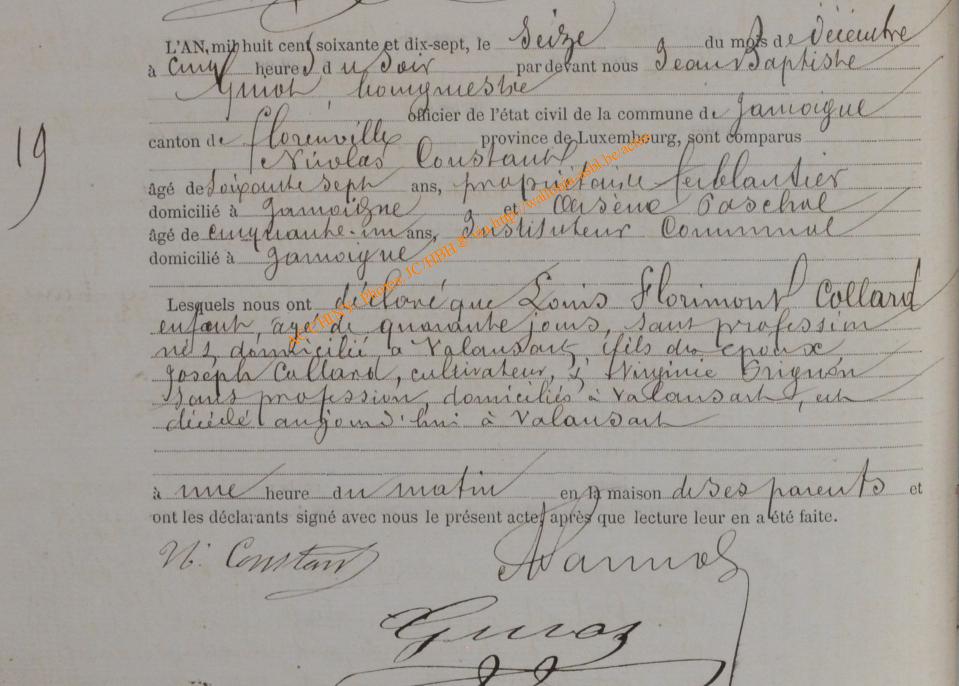 L'AN, mil huit cent soixante et dix-sept, le Seize du mois de décembre
à cinq heures du Soir par devant nous Jean Baptiste
bourgmestre
officier de l'état civil de la commune de Jamoigne
canton de Florenville province de Luxembourg, sont comparus
Nicolas Constant
âgé de Soixante Sept ans, propriétaire ferblantier
domicilié à Jamoigne et Arsène Paschal
âgé de cinquante-un ans, Instituteur Communal
domicilié à Jamoigne
19
Lesquels nous ont déclaré que Louis Florimont Collard
enfant, agé de quarante jours, sans profession
né &, domicilié à Valansart, fils des époux
Joseph Collard, cultivateur, & Virginie Grignon
Sans profession, domiciliés à Valansart, est
décédé aujourd'hui à Valansart
à une heure du matin en la maison de ses parents et
ont les déclarants signé avec nous le présent acte, après que lecture leur en a été faite.
N. Constant